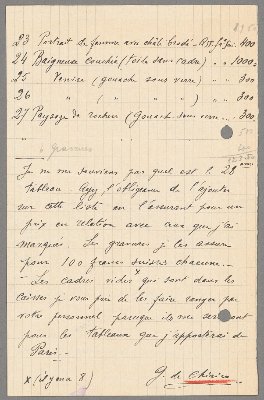 23 Portrait de femme avec châle brodé 400
24 Baigneuse couchée (toile sans cadre) „ „ 1000
25 Venise (gouache sous verre) „ 300
26 „ ( „ „ ) „ 300
27 Paysage de rochers (Gouache sous verre... 300
6 gravures
Je ne me souviens pas quel est le 28
tableau. Ayez l'obligeance de l'ajouter
sur cette liste en l'assurant pour un
prix en relation avec ceux que j'ai
marqués. Les gravures je les assure
pour 100 francs suisses chacune.
Les cadres vides x qui sont dans les
caisses je vous prie de les faire ranger par
votre personnel parceque ils me serviront
pour les tableaux que j'apporterai de
Paris.
x (il y en a 8)
G. de Chirico